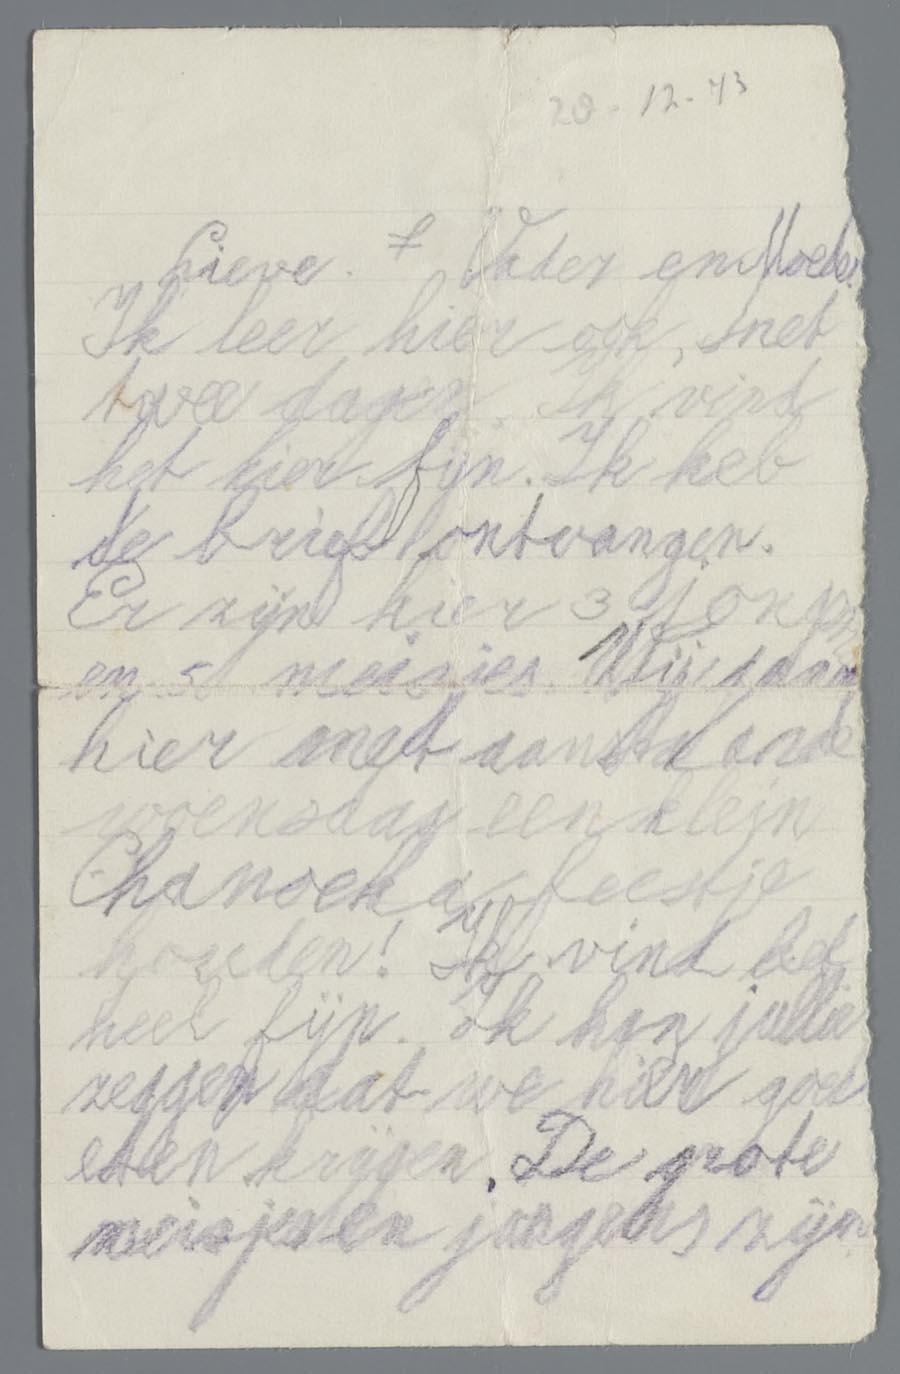 20-12-43
Lieve. Vader en Moeder
Ik leer hier ook, met
twee dagen. Ik vind
het hier fijn. Ik heb
de brief ontvangen.
Er zijn hier 3 jongen
en 5 meisjes. Wij gaan
hier met aanstaande
woensdag een klein
Chanoeka feestje
houden! Ik vind het
heel fijn. Ik kan jullie
zeggen dat we hier goed
eten krijgen. De grote
meisjes en jongens zijn